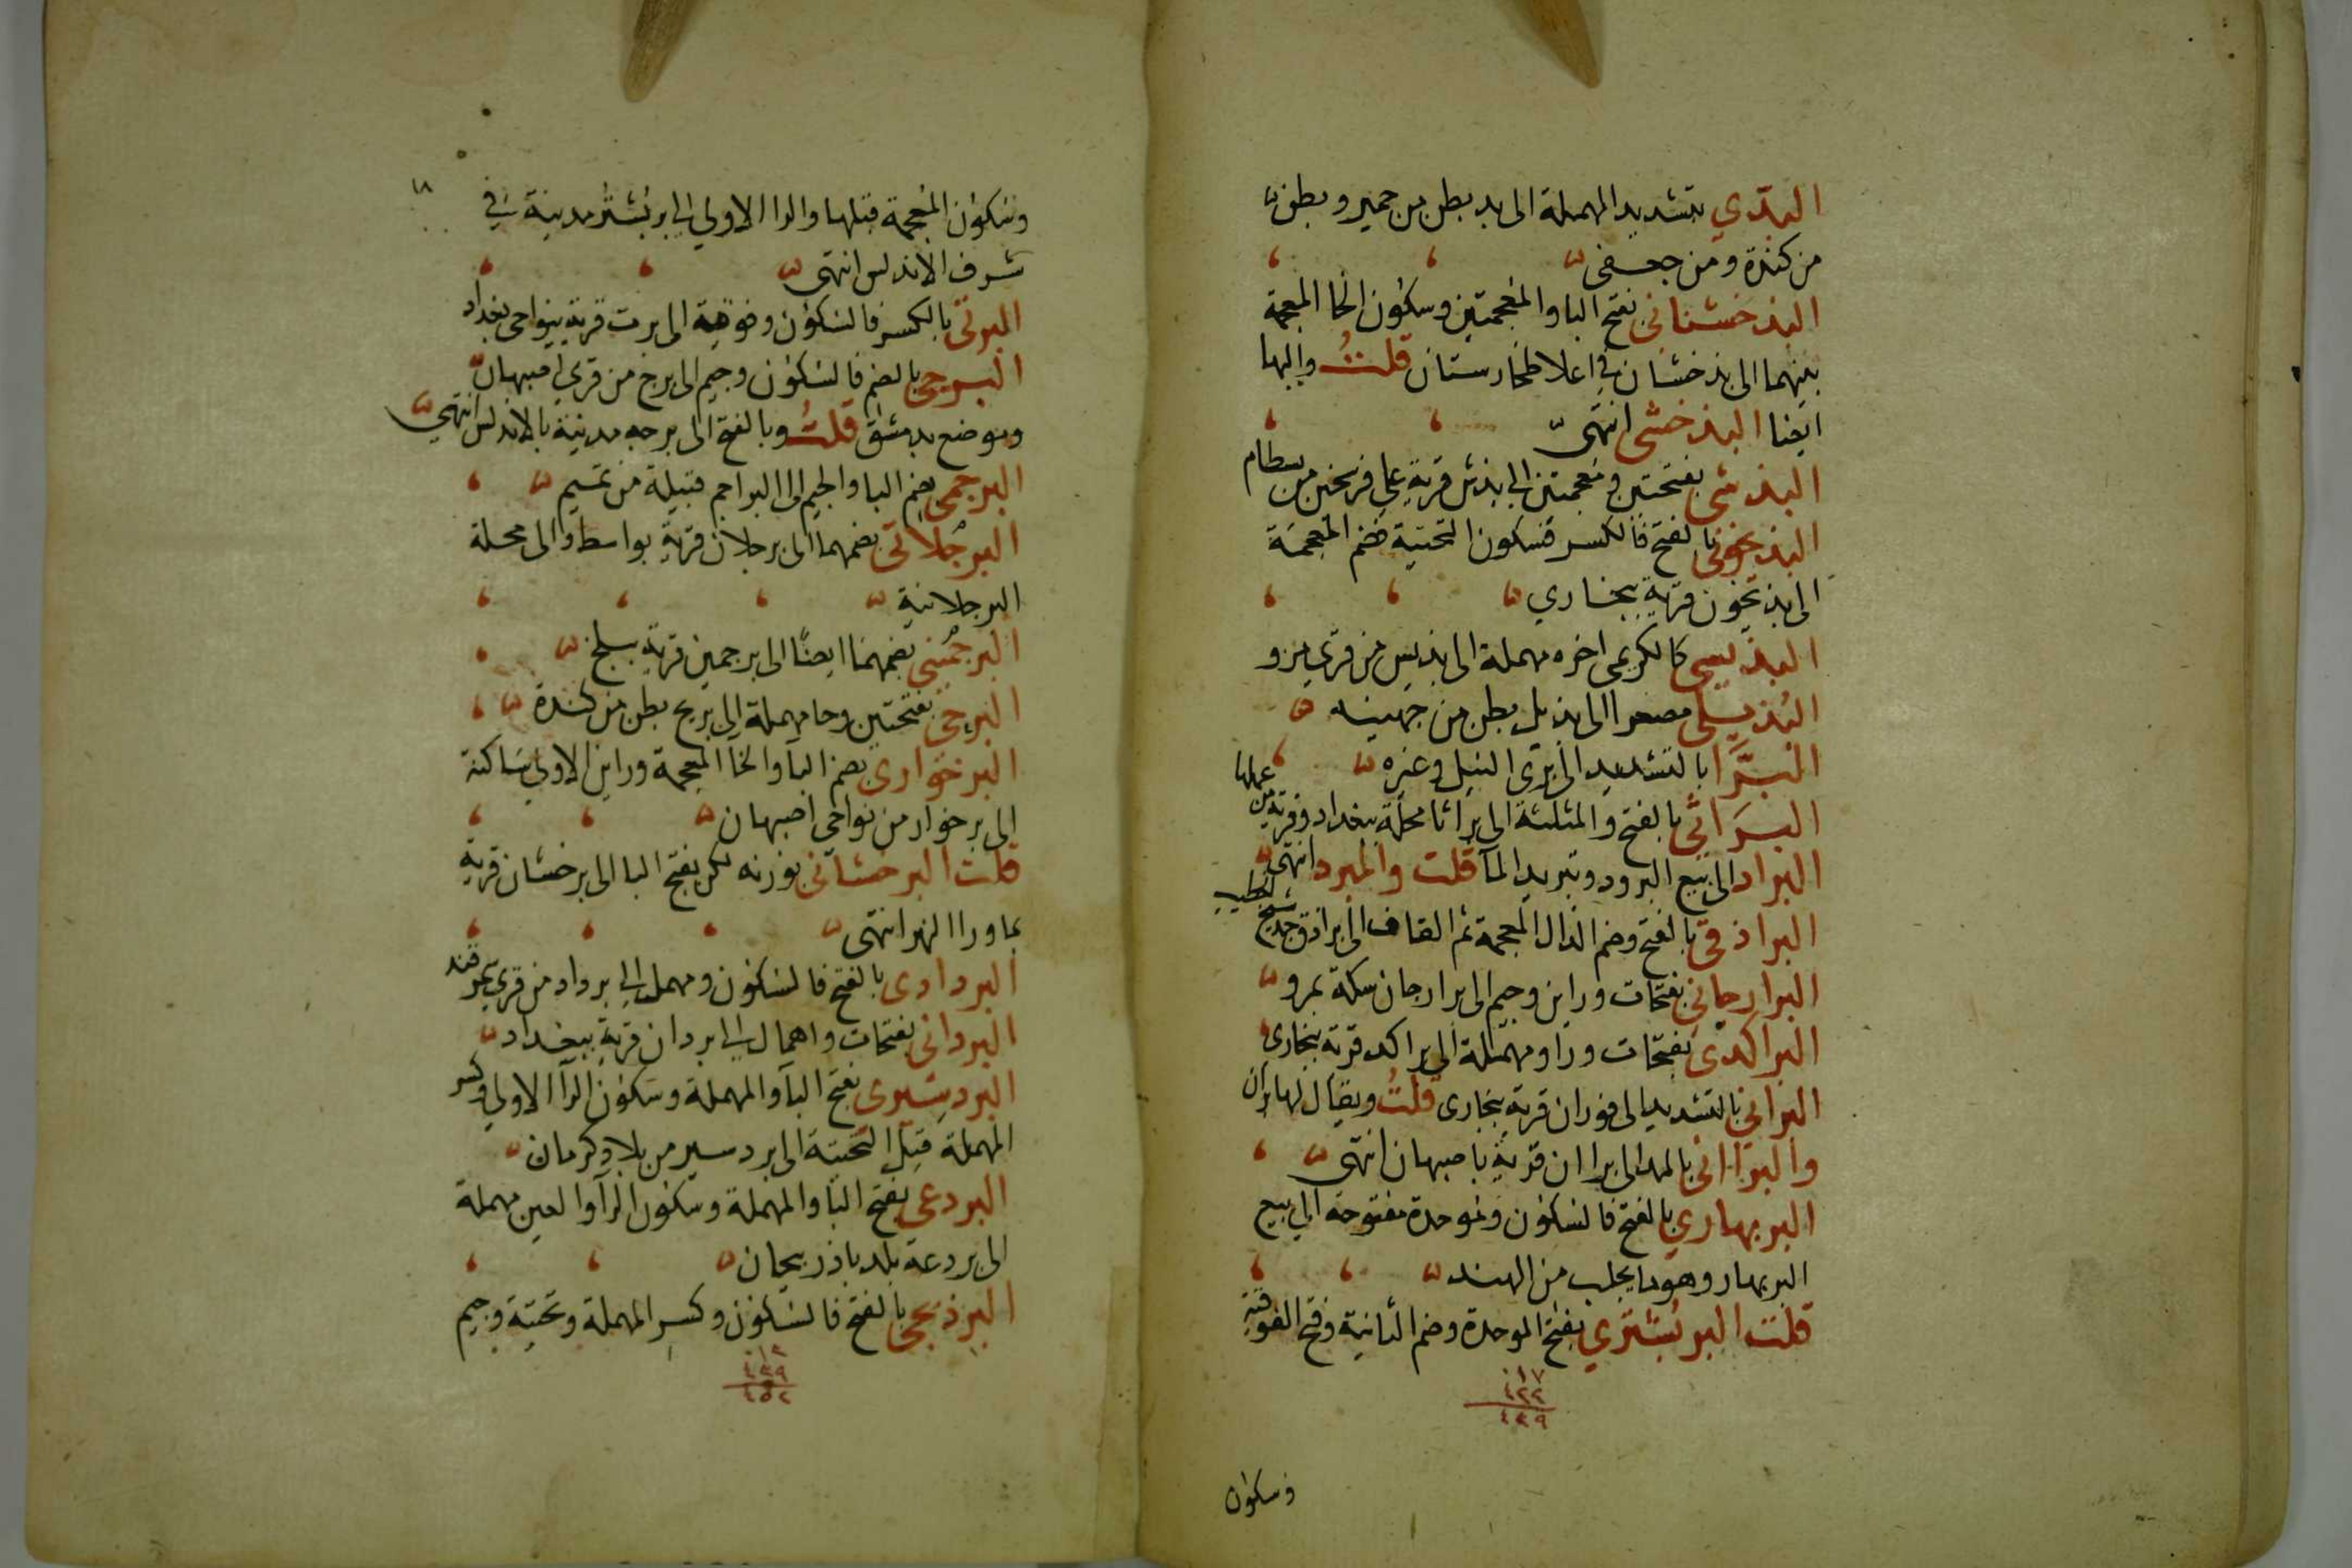 البدي بتشديد المهملة الى بد بطن من حمير وبطن
من كندة ومن جعفى
البذخشانى بفتح البا والمعجمتين وسكون الخا المعجمة
بينهما الى بذخشان فى اعلا طخارستان قلت واليها
ايضا البذخشى انتهى
البذشى بفتحتين ومعجمتين الى بذش قرية على فرسخين من بسطام
البذيخونى بالفتح فالكسر فسكون التحتية فضم المعجمة
الى بذيخون قرية ببخارى
البذيسى كالكريمى اخره مهملة الى بذيس من قرى مرو
البُذيلى مصغرا الى بذيل بطن من جهينه
البَرَّا بالتشديد الى برى النبل وغيره
البَراثى بالفتح والمثلثة الى براثا محلة ببغداد وقرية من عملها
البراد الى بيع البرود وتبريد المآ قلت والمبرد انتهى
البراذقى بالفتح وضم الذال المعجمة ثم القاف الى براذق جد شيخ لخطيب
البرارجانى بفتحات وراين وجيم الى برارجان سكة بمرو
البراكدى بفتحات ورا ومهملة الى براكد قرية ببخارى
البرانى بالتشديد الى فوران قرية ببخارى قلتُ ويقال لها بران
والبراانى بالمد الى براان قرية باصبهان انتهى
البربهاري بالفتح فالسكون وموحدة مفتوحة الى بيع
البربهار وهو ما يجلب من الهند
قلت البربُشتري بفتح الموحدة وضم الثانية وفتح الفوقية
١٧
٤٢٢
٤٣٩
وسكون
١٨
وسكون المعجمة قبلها والرا الاولى الى بربُشتر مدينة فى
شرف الاندلس انتهى
البرتى بالكسر فالسكون وفوقية الى برت قرية بنواحى بغداد
البرجى بالضم فالسكون وجيم الى برج من قرى اصبهان
وموضع بدمشق قلتُ وبالفتح الى برجه مدينة بالاندلس انتهى
البرجمى بضم البا والجيم الى البراجم قبيلة من تميم
البرجُلانى بضمهما الى برجلان قرية بواسط والى محلة
البرجلانية
البرجُمينى بضمهما ايضًا الى برجمين قرية ببلخ
البرحى بفتحتين وحا مهملة الى بريح بطن من كندة
البرخوارى بضم البا والخا المعجمة وراين الاولى ساكنة
الى برخوار من نواحى اصبهان
قلت البرخشانى بوزنه لكن بفتح البا الى برخشان قرية
بما ورا النهر انتهى
البردادى بالفتح فالسكون ومهملة الى برداد من قرى سمرقند
البردانى بفتحات واهمال الى بردان قرية ببغداد
البردسِيرى بفتح البآ والمهملة وسكون الرآ الاولى وكسر
المهملة قبل التحتية الى بردسير من بلاد كرمان
البردعى بفتح البا والمهملة وسكون الرآ والعين مهملة
الى بردعة بلد باذربيجان
البرذيجى بالفتح فالسكون وكسر المهملة وتحتية وجيم
١٣
٤٣٩
٤٥٢